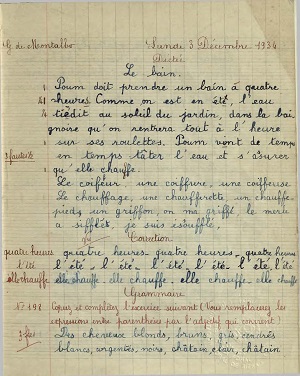 G de Montalbo Lundi 3 Décembre 1934
Dictée
Le bain.
Poum doit prendre un bain à quatre
heures. Comme on est en été, l'eau
tiédit au soleil du jardin, dans la bai
gnoire qu'on rentrera tout à l'heure
sur ses roulettes. Poum vont de temps
3 fautes ½ en temps tâter l'eau et s'assurer
qu'elle chauffe.
Le coiffeur, une coiffure, une coiffeuse
Le chauffage, une chaufferette, un chauffe-
pieds, un griffon, on ma griffé, le merle
a sifflet, je suis essoufflé,
Correction
quatre heures quatre heures - quatre heures, quatre heures
l'été l'été - l'été - l'été - l'été - l'été, l'été
elle chauffe elle chauffe elle chauffe - elle chauffe, elle chauffe
Grammaire
N° 498 Copiez et complétez l'exercice suivant (Vous remplacerez les
expressions entre parenthèses par l'adjectif qui convient)
Des cheveux blonds, bruns, gris, cendrés
blancs, argentés, noirs, châtain clair, châtain